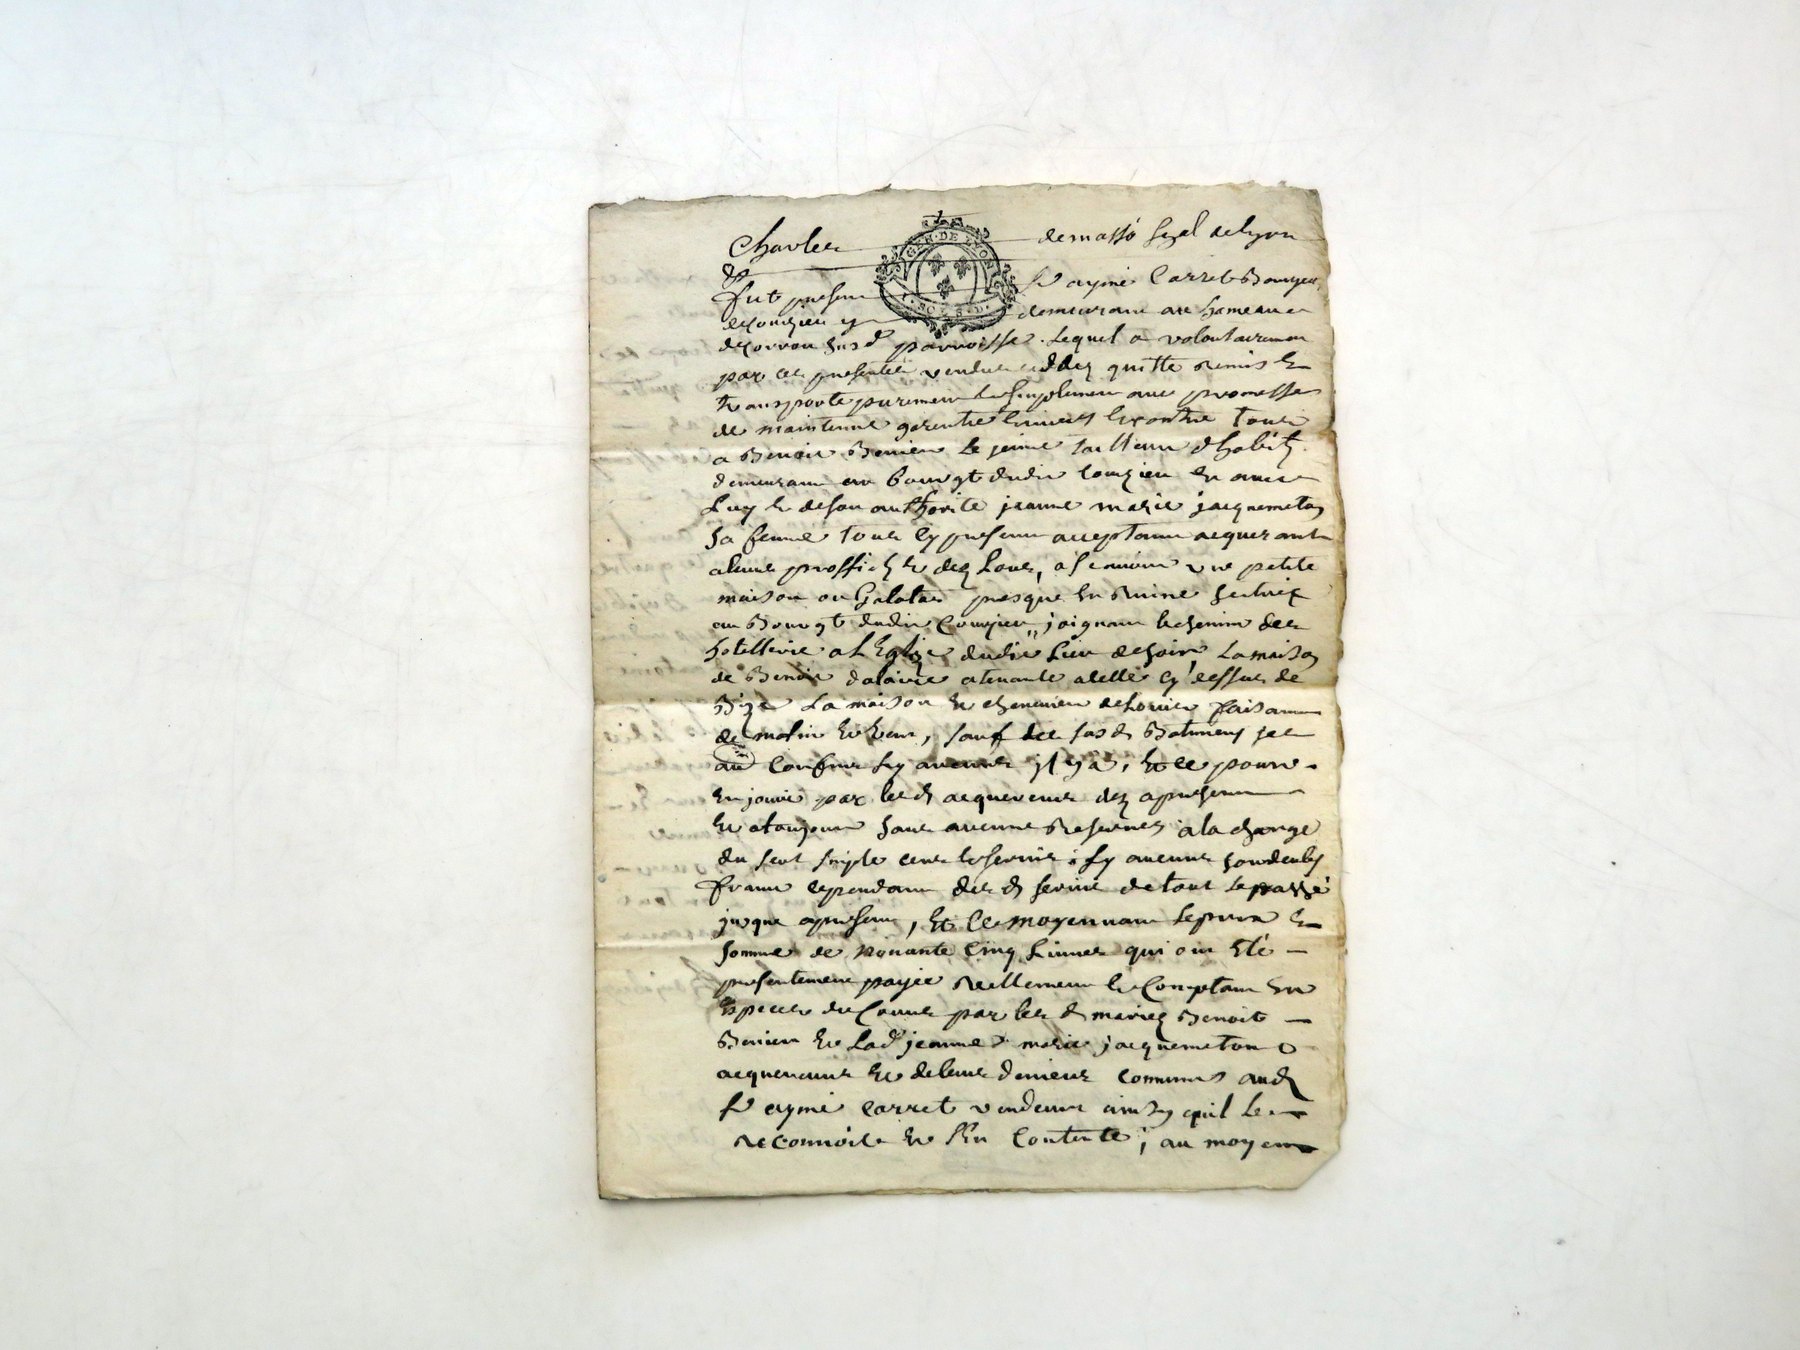 Charles de masso Senl de lyon
GEN. DE LYON
SOLS. D.
&
fut present Sr aymé Carret Bourgeois
de Courzieu y demeurant au hameau
de susd parroisse. Lequel a volontairement
par ces presentes vendu cedé quitte remis et
transporte purement et simplement avec promesse
de maintenue garentie envers et contre tous
a Benoit le jeune tailleur d'habits
demeurant au bourgt dudit Courzieu et avec
Luy et de son authorité jeanne marie jacquemeton
sa femme tous cy presents acceptant acquerant
a leurs proffit et des Leurs, a scavoir une petite
maison ou Galatas presque en Ruine scituée
au Bourgt dudit Courzieu joignant le chemin des
hotelleries a l'Eglize dudit Lieu de soir, La maison
de Benoit atenante a celle cy dessus de
Bize La maison et de Louis faisant
de matin et vent, sauf des susd Batiments ses
au confins sy aucuns il y a, et ce pour
en jouir par lesd acquereurs dez a present
et a toujours sans aucune Reserves a la charge
du seul simple cens et servis sy aucuns sont deubs
franc cependant desd servis de tout le passé
jusque a present, et ce moyennant le prix et
somme de nonante cinq Livres qui ont Eté
presentement payée reellement et Comptant en
Especes du Cours par lesd mariez Benoit
et Lad jeanne marie jacquemeton
acquereurs et de leurs deniers communs aud
Sr aymé Carret vendeur ainsy quil le
reconnoit et s'En Contente; au moyen